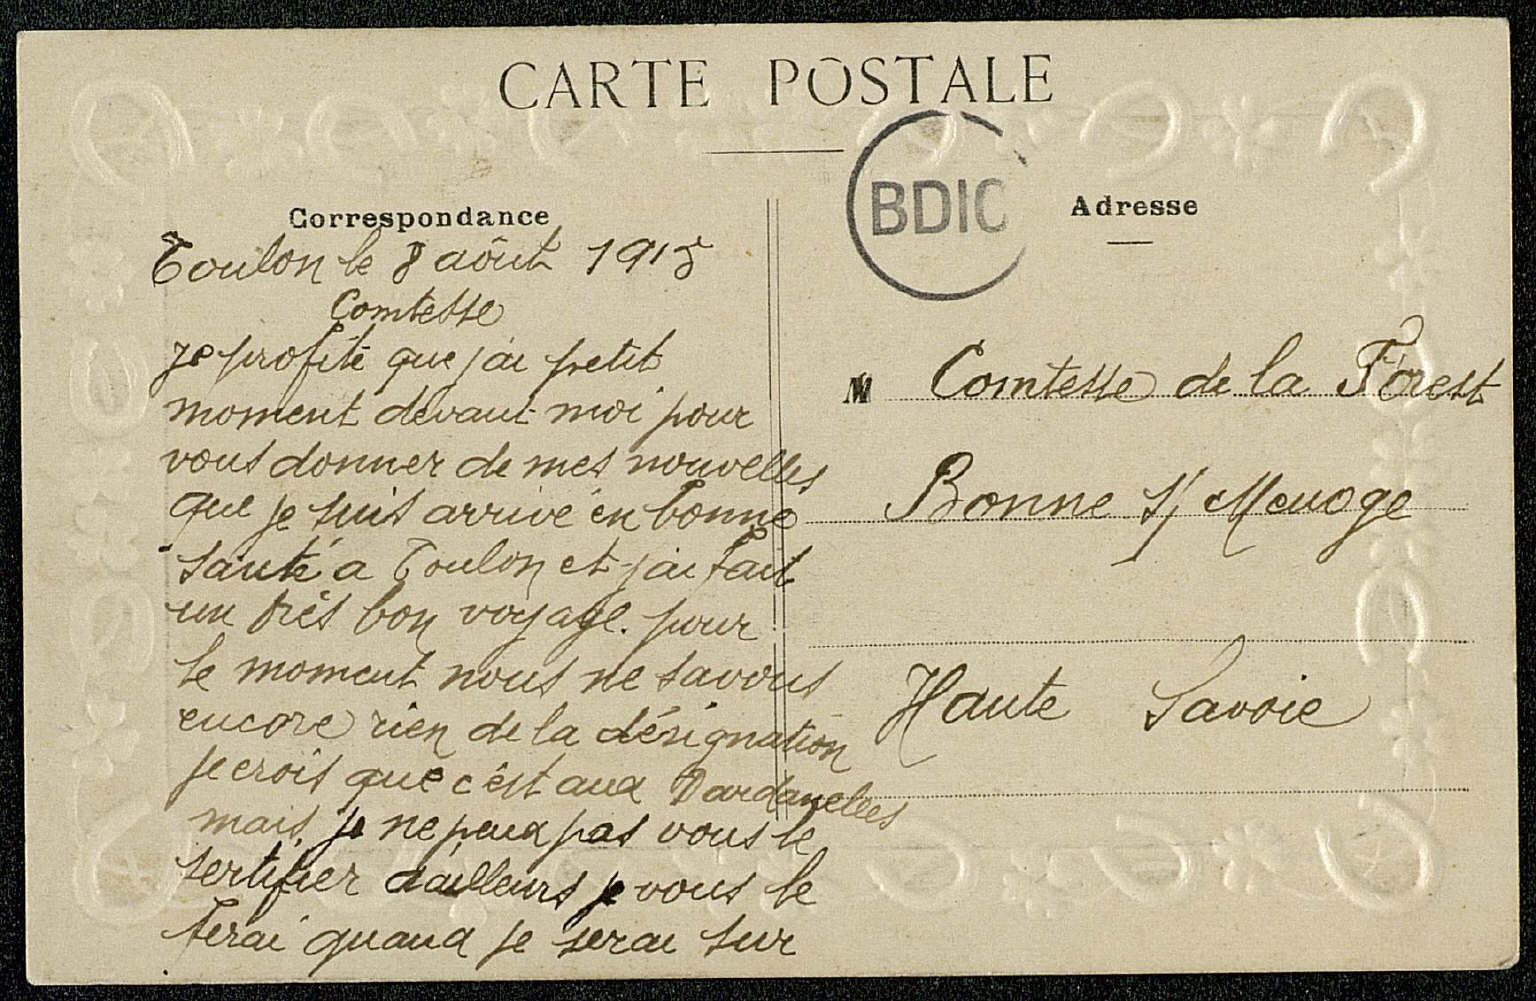 CARTE POSTALE
BDIC
Correspondance
Toulon le 8 aôut 1915
Comtesse
je profite que j'ai petit
moment devant moi pour
vous donner de mes nouvelles
que je suis arrivé en bonne
santé a Toulon et j'ai fait
un très bon voyage. pour
le moment nous ne savons
encore rien de la désignation
je crois que c'est aux Dardanelles
mais je ne peux pas vous le
sertifier d'ailleurs je vous le
ferai quand je serai sur
Adresse
M Comtesse de la Forest
Bonne s/ Menoge
Haute Savoie